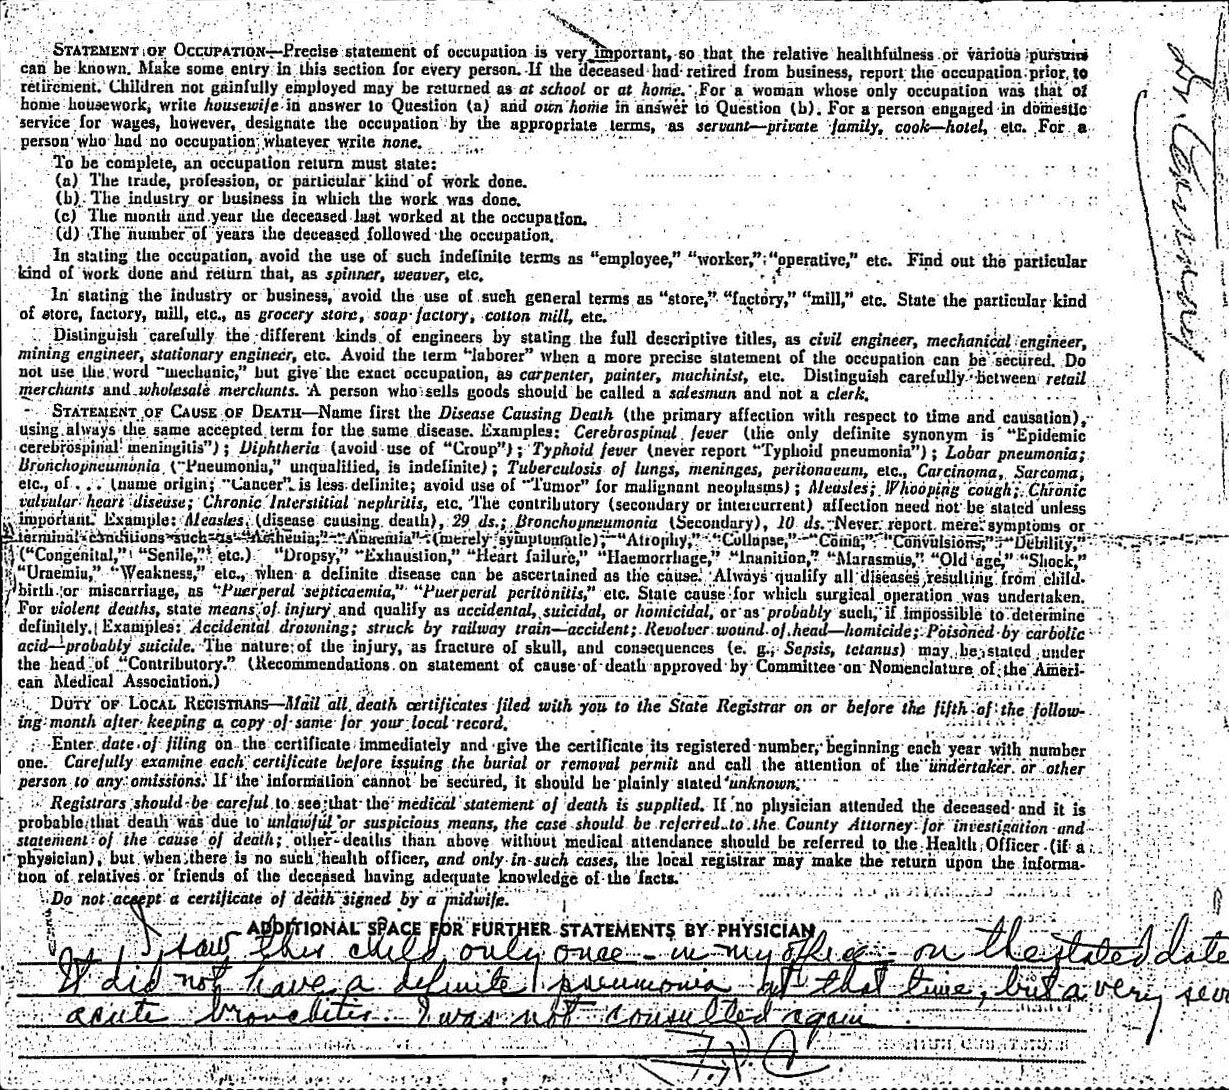 STATEMENT OF OCCUPATION—Precise statement of occupation is very important, so that the relative healthfulness or various pursuits
can be known. Make some entry in this section for every person. If the deceased had retired from business, report the occupation prior to
retirement. Children not gainfully employed may be returned as at school or at home. For a woman whose only occupation was that of
home housework, write housewife in answer to Question (a) and own home in answer to Question (b). For a person engaged in domestic
service for wages, however, designate the occupation by the appropriate terms, as servant—private family, cook—hotel, etc. For a
person who had no occupation whatever write none.
To be complete, an occupation return must state:
(a) The trade, profession, or particular kind of work done.
(b) The industry or business in which the work was done.
(c) The month and year the deceased last worked at the occupation.
(d) The number of years the deceased followed the occupation.
In stating the occupation, avoid the use of such indefinite terms as "employee," "worker," "operative," etc. Find out the particular
kind of work done and return that, as spinner, weaver, etc.
In stating the industry or business, avoid the use of such general terms as "store," "factory," "mill," etc. State the particular kind
of store, factory, mill, etc., as grocery store, soap factory, cotton mill, etc.
Distinguish carefully the different kinds of engineers by stating the full descriptive titles, as civil engineer, mechanical engineer,
mining engineer, stationary engineer, etc. Avoid the term "laborer" when a more precise statement of the occupation can be secured. Do
not use the word "mechanic," but give the exact occupation, as carpenter, painter, machinist, etc. Distinguish carefully between retail
merchants and wholesale merchants. A person who sells goods should be called a salesman and not a clerk.
STATEMENT OF CAUSE OF DEATH—Name first the Disease Causing Death (the primary affection with respect to time and causation),
using always the same accepted term for the same disease. Examples: Cerebrospinal fever (the only definite synonym is "Epidemic
cerebrospinal meningitis"); Diphtheria (avoid use of "Croup"); Typhoid fever (never report "Typhoid pneumonia"); Lobar pneumonia;
Bronchopneumonia ("Pneumonia," unqualified, is indefinite); Tuberculosis of lungs, meninges, peritonaeum, etc., Carcinoma, Sarcoma,
etc., of . . . (name origin; "Cancer" is less definite; avoid use of "Tumor" for malignant neoplasms); Measles; Whooping cough; Chronic
valvular heart disease; Chronic Interstitial nephritis, etc. The contributory (secondary or intercurrent) affection need not be stated unless
important. Example: Measles (disease causing death), 29 ds.; Bronchopneumonia (Secondary), 10 ds. Never report mere symptoms or
terminal conditions such as "Asthenia," "Anaemia" (merely symptomatic), "Atrophy," "Collapse," "Coma," "Convulsions," "Debility,"
("Congenital," "Senile," etc.) "Dropsy," "Exhaustion," "Heart failure," "Haemorrhage," "Inanition," "Marasmus," "Old age," "Shock,"
"Uraemia," "Weakness," etc., when a definite disease can be ascertained as the cause. Always qualify all diseases resulting from child-
birth or miscarriage, as "Puerperal septicaemia," "Puerperal peritonitis," etc. State cause for which surgical operation was undertaken.
For violent deaths, state means of injury and qualify as accidental, suicidal, or homicidal, or as probably such, if impossible to determine
definitely. Examples: Accidental drowning; struck by railway train—accident; Revolver wound of head—homicide; Poisoned by carbolic
acid—probably suicide. The nature of the injury, as fracture of skull, and consequences (e. g., Sepsis, tetanus) may be stated under
the head of "Contributory." (Recommendations on statement of cause of death approved by Committee on Nomenclature of the Ameri-
can Medical Association.)
DUTY OF LOCAL REGISTRARS—Mail all death certificates filed with you to the State Registrar on or before the fifth of the follow-
ing month after keeping a copy of same for your local record.
Enter date of filing on the certificate immediately and give the certificate its registered number, beginning each year with number
one. Carefully examine each certificate before issuing the burial or removal permit and call the attention of the undertaker or other
person to any omissions. If the information cannot be secured, it should be plainly stated unknown.
Registrars should be careful to see that the medical statement of death is supplied. If no physician attended the deceased and it is
probable that death was due to unlawful or suspicious means, the case should be referred to the County Attorney for investigation and
statement of the cause of death; other deaths than above without medical attendance should be referred to the Health Officer (if a
physician), but when there is no such health officer, and only in such cases, the local registrar may make the return upon the informa-
tion of relatives or friends of the deceased having adequate knowledge of the facts.
Do not accept a certificate of death signed by a midwife.
ADDITIONAL SPACE FOR FURTHER STATEMENTS BY PHYSICIAN
I saw this child only once - in my office - on the stated date
It did not have a definite pneumonia at that time, but a very seve
acute bronchitis. I was not consulted again.
Dr.